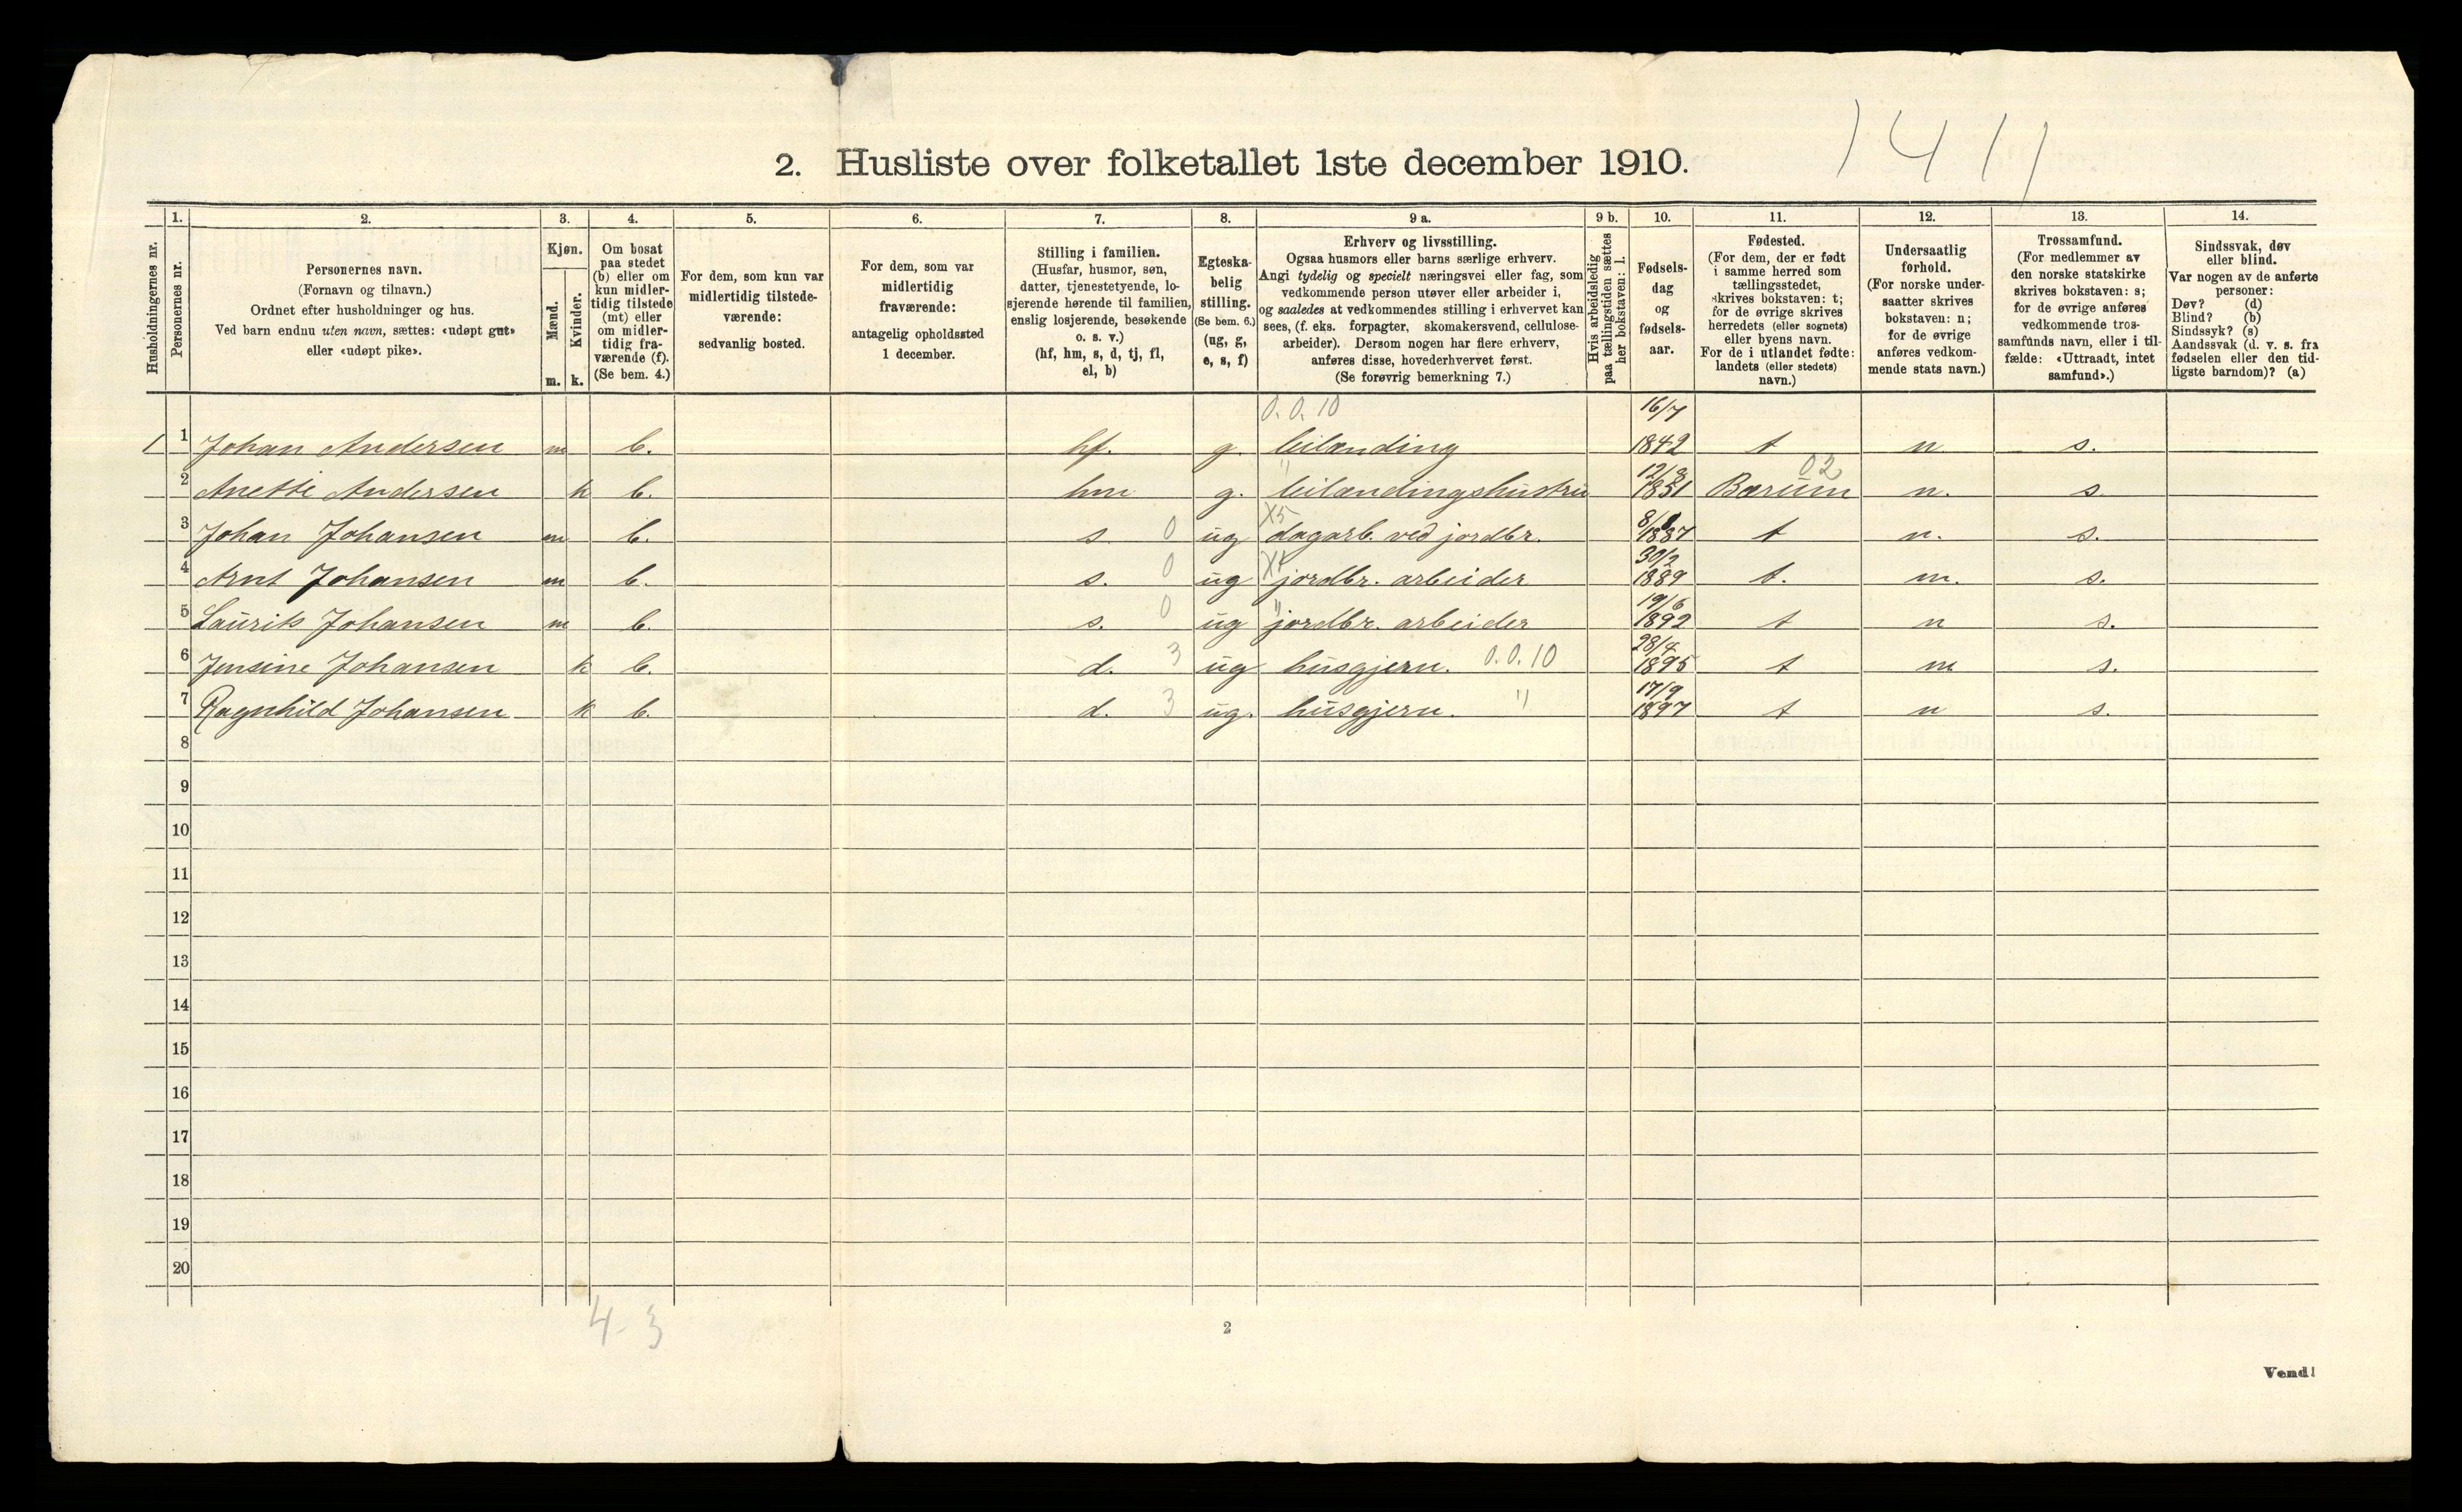 1411
2. Husliste over folketallet 1ste december 1910.
Husholdningernes nr.
1.
Personernes nr.
2.
Personernes navn.
(Fornavn og tilnavn.)
Ordnet efter husholdninger og hus.
Ved barn endnu uten navn, sættes: «udøpt gut»
eller «udøpt pike».
3.
Kjøn.
Mænd.
Kvinder.
m. k.
4.
Om bosat
paa stedet
(b) eller om
kun midler-
tidig tilstede
(mt) eller
om midler-
tidig fra-
værende (f).
(Se bem. 4.)
5.
For dem, som kun var
midlertidig tilstede-
værende:
sedvanlig bosted.
6.
For dem, som var
midlertidig
fraværende:
antagelig opholdssted
1 december.
7.
Stilling i familien.
(Husfar, husmor, søn,
datter, tjenestetyende, lo-
sjerende hørende til familien,
enslig losjerende, besøkende
o. s. v.)
(hf, hm, s, d, tj, fl,
el, b)
8.
Egteska-
belig
stilling.
(Se bem. 6.)
(ug, g,
e, s, f)
9 a.
Erhverv og livsstilling.
Ogsaa husmors eller barns særlige erhverv.
Angi tydelig og specielt næringsvei eller fag, som
vedkommende person utøver eller arbeider i,
og saaledes at vedkommendes stilling i erhvervet kan
sees, (f. eks. forpagter, skomakersvend, cellulose-
arbeider). Dersom nogen har flere erhverv,
anføres disse, hovederhvervet først.
(Se forøvrig bemerkning 7.)
9 b.
Hvis arbeidsledig
paa tællingstiden sættes
her bokstaven: l.
10.
Fødsels-
dag
og
fødsels-
aar.
11.
Fødested.
(For dem, der er født
i samme herred som
tællingsstedet,
skrives bokstaven: t;
for de øvrige skrives
herredets (eller sognets)
eller byens navn.
For de i utlandet fødte:
landets (eller stedets)
navn.)
12.
Undersaatlig
forhold.
(For norske under-
saatter skrives
bokstaven: n;
for de øvrige
anføres vedkom-
mende stats navn.)
13.
Trossamfund.
(For medlemmer av
den norske statskirke
skrives bokstaven: s;
for de øvrige anføres
vedkommende tros-
samfunds navn, eller i til-
fælde: «Uttraadt, intet
samfund».)
14.
Sindssvak, døv
eller blind.
Var nogen av de anførte
personer:
Døv? (d)
Blind? (b)
Sindssyk? (s)
Aandssvak (d. v. s. fra
fødselen eller den tid-
ligste barndom)? (a)
0.0.10 16/7
1 1 Johan Andersen m b. hf. g. leilænding 1842 t n s.
2 Anette Andersen k b. hm g. " leilændingshustru 12/8 1851 Bærum 02 n. s
3 Johan Johansen m b. s. 0 ug X5 dagarb. ved jordbr. 1887 t n. s.
4 Arnt Johansen m b. s. 0 ug X4 jordbr. arbeider 30/2 1889 t. n. s.
5 Laurits Johansen m b. s. 0 ug " jordbr. arbeider 19/6 1892 t n s.
6 Jensine Johansen k b. d. 3 ug husgjern. 0.0.10 28/4 1895 t n s.
7 Ragnhild Johansen k b. d. 3 ug. husgjern. " 17/9 1897 t n s.
8
9
10
11
12
13
14
15
16
17
18
19
20
4-3
2
Vend!